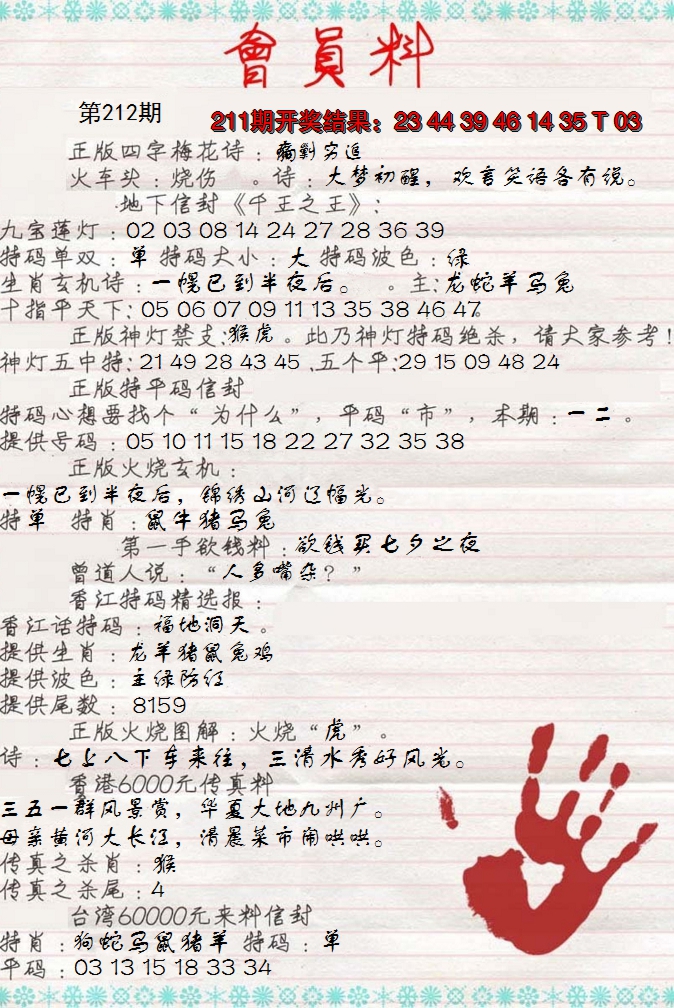 會員料
第212期
211期开奖结果：23 44 39 46 14 35 T 03
正版四字梅花诗：痛剿穷追
火车头：烧伤 。诗：大梦初醒，欢言笑语各有说。
地下信封《千王之王》：
九宝莲灯：02 03 08 14 24 27 28 36 39
特码单双：单 特码大小：大 特码波色：绿
生肖玄机诗：一幌已到半夜后。 。主：龙蛇羊马兔
十指平天下：05 06 07 09 11 13 35 38 46 47
正版神灯禁支：猴虎。此乃神灯特码绝杀，请大家参考！
神灯五中特：21 49 28 43 45 .五个平：29 15 09 48 24
正版特平码信封
特码心想要找个“为什么”，平码“市”，本期：一二。
提供号码：05 10 11 15 18 22 27 32 35 38
正版火烧玄机：
一幌已到半夜后，锦绣山河辽幅光。
特单 特肖：鼠牛猪马兔
第一手欲钱料：欲钱买七夕之夜
曾道人说：“人多嘴杂？”
香江特码精选报：
香江话特码：福地洞天。
提供生肖：龙羊猪鼠兔鸡
提供波色：主绿防红
提供尾数：8159
正版火烧图解：火烧“虎”。
诗：七上八下车来往，三清水秀好风光。
香港6000元传真料
三五一群风景赏，华夏大地九州广。
母亲黄河大长江，清晨菜市闹哄哄。
传真之杀肖：猴
传真之杀尾：4
台湾60000元来料信封
特肖：狗蛇马鼠猪羊 特码：单
平码：03 13 15 18 33 34